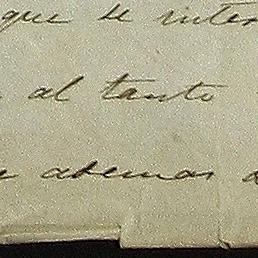 que se inter
al tanto
ademas